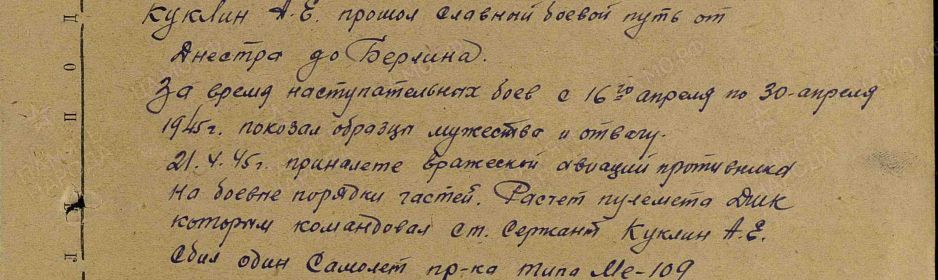 Куклин А.Е. прошол славный боевой путь от
Днестра до Берлина.
За время наступательных боев с 16го апреля по 30-апреля
1945г. покозал образцы мужества и отвагу.
21.4.45г. приналете вражеской авиаций противника
на боевые порядки частей. Расчет пулемета Дшк
которым командовал ст. Сержант Куклин А.Е.
Сбил один Самолет пр-ка типа Ме-109